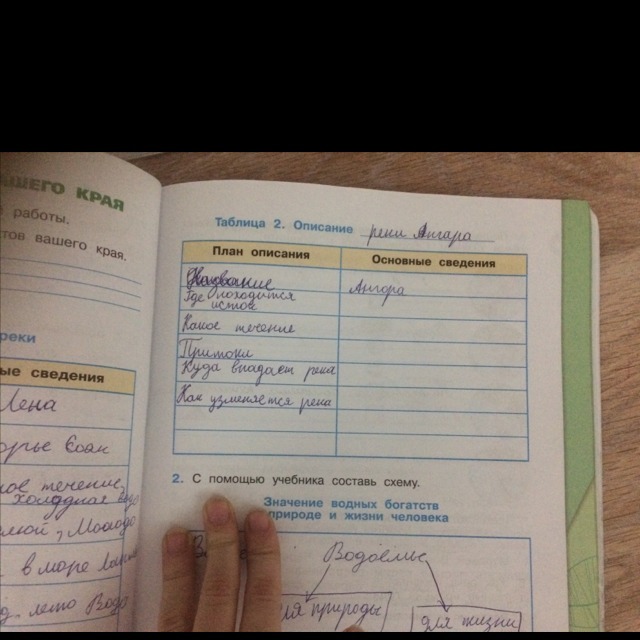 ВАШЕГО КРАЯ
работы.
тов вашего края.
реки
ые сведения
Лена
орье Саян
ное течение,
холодная вода
в море
лето Водо
Таблица 2. Описание реки Ангара
План описания Основные сведения
Название Ангара
Где находится
исток
Какое течение
Притоки
Куда впадает река
Как изменяется река
2. С помощью учебника составь схему.
Значение водных богатств
природе и жизни человека
Водоёмы
для природы для жизни